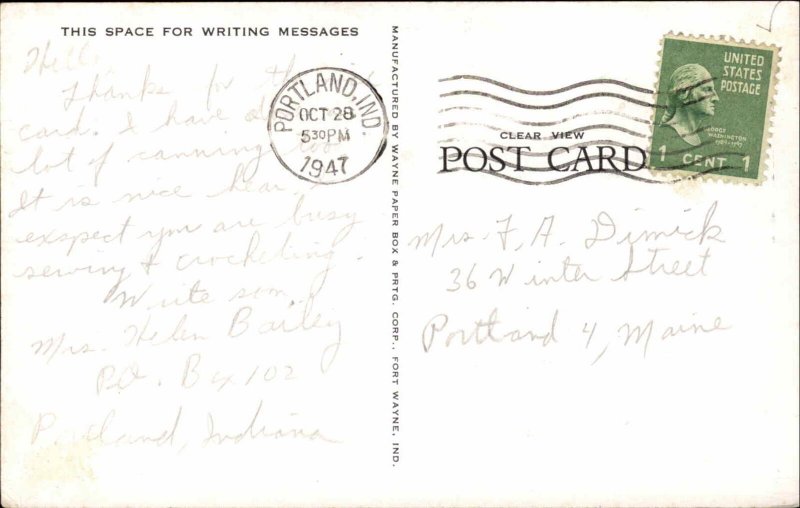 THIS SPACE FOR WRITING MESSAGES
Hello
Thanks for the
card. I have done
lot of canning too
It is nice hear. I
exspect you are busy
sewing & crocheting.
Write soon.
Mrs. Helen Bailey
P.O. Box 102
Portland, Indiana
MANUFACTURED BY WAYNE PAPER BOX & PRTG. CORP., FORT WAYNE, IND.
PORTLAND, IND.
OCT 28
530PM
1947
UNITED
STATES
POSTAGE
GEORGE
WASHINGTON
1789-1797
1 CENT 1
CLEAR VIEW
POST CARD
Mrs. F. A. Dimick
36 Winter Street
Portland 4, Maine